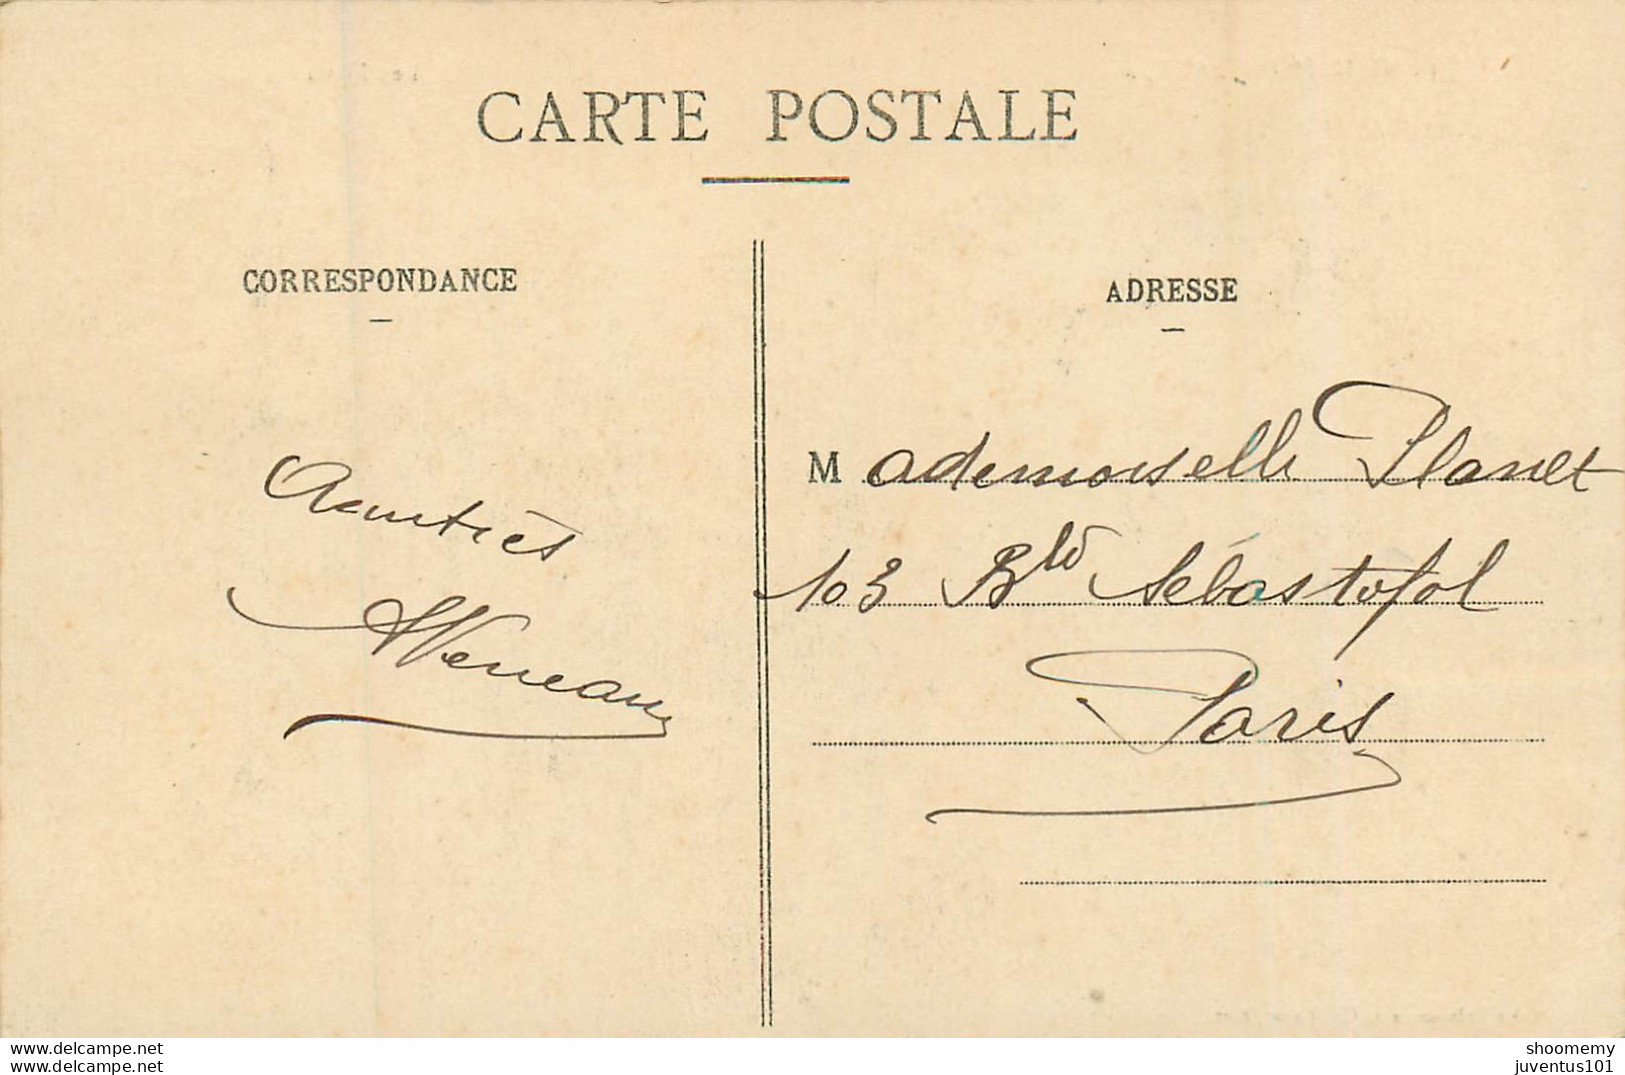 CARTE POSTALE
CORRESPONDANCE
ADRESSE
Amitiés
Mademoiselle Planet
103 Bld Sébastopol
Paris
www.delcampe.net
shoomemy
juventus101